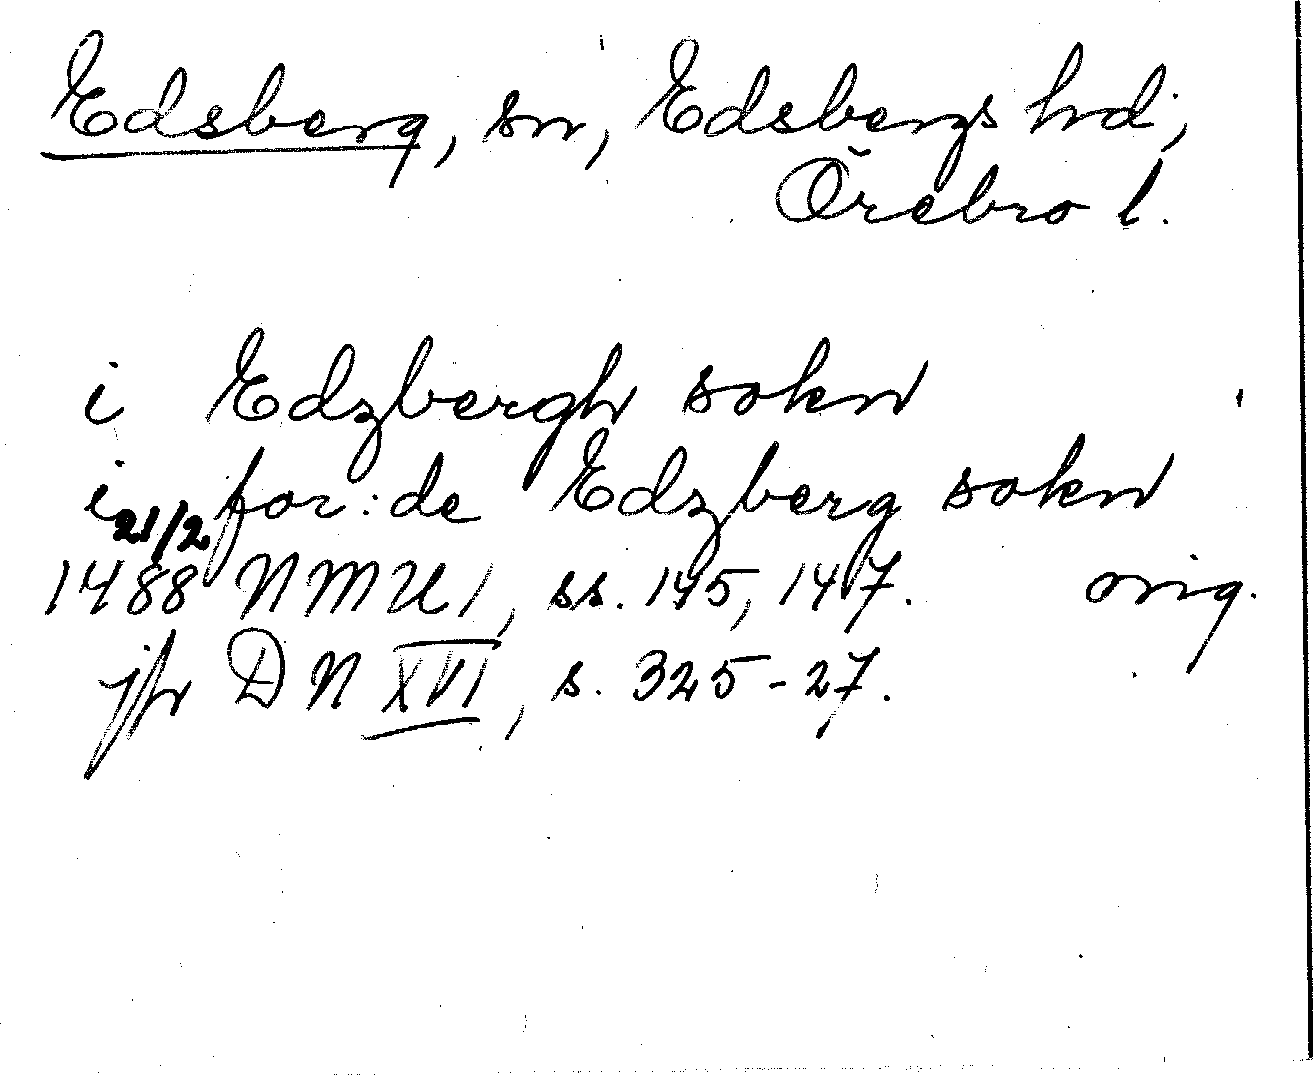 Edsberg, sn, Edsbergs hd,
Örebro l.
i Edzbergh sokn
i for:de Edzberg sokn
21/2
1488 NMU 1, ss. 145, 147. orig.
jfr DN XVI, s. 325-27.